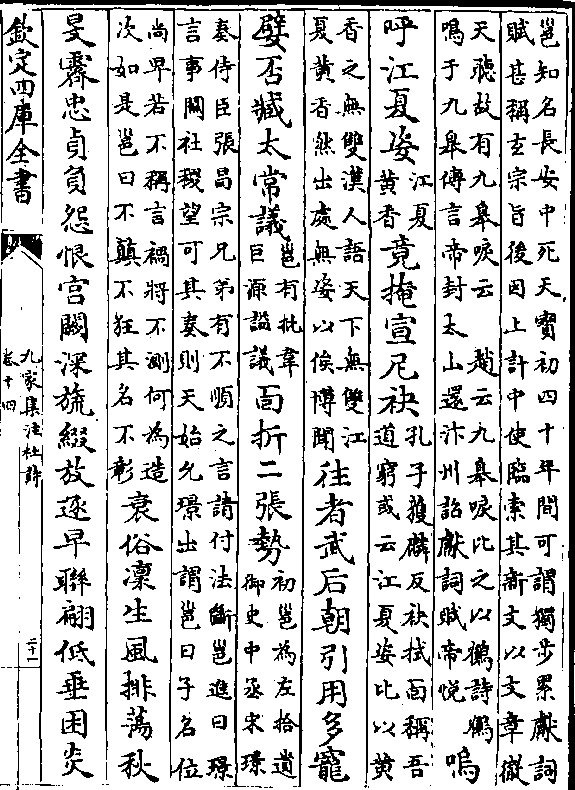 邕知名長安中死天寶初四十年間可謂獨步累獻詞
賦甚稱玄宗旨後因上計中使臨索其新文以文章徹
天聽故有九皋唳云　趙云九皋唳比之以鶴詩鶴
鳴于九皋傳言帝封太山還汴州詔獻詞賦帝悅
嗚
呼江夏姿
江夏
黄香
竟掩宣尼袂
孔子獲麟反袂拭面稱吾
道窮或云江夏姿比以黄
香之無雙漢人語天下無雙江
夏黄香然出處無姿以俟博聞
往者武后朝引用多寵
嬖否臧太常議
邕有批韋
巨源諡議
面折二張勢
初邕為左拾遺
御史中丞宋璟
奏侍臣張昌宗兄弟有不順之言請付法斷邕進曰璟
言事關社稷望可其奏則天始允璟出謂邕曰子名位
尚卑若不稱言禍將不測何為造
次如是邕曰不顛不狂其名不彰
衰俗凜生風排蕩秋
旻霽忠貞負怨恨宮闕深旒綴放逐早聯翩低垂困炎
欽定四庫全書
九家集注杜詩
卷十四
二十一